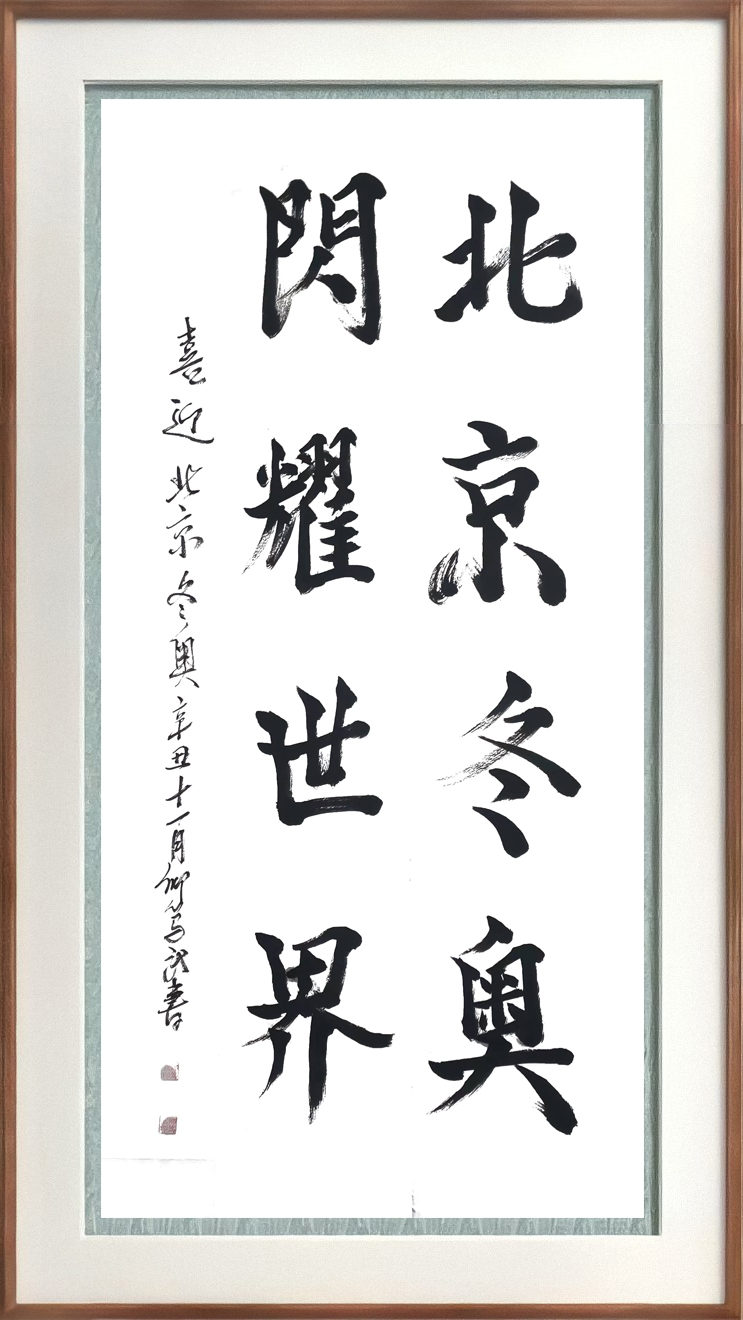 北京冬奥
閃耀世界
喜迎北京冬奥辛丑十一月仰篤武書